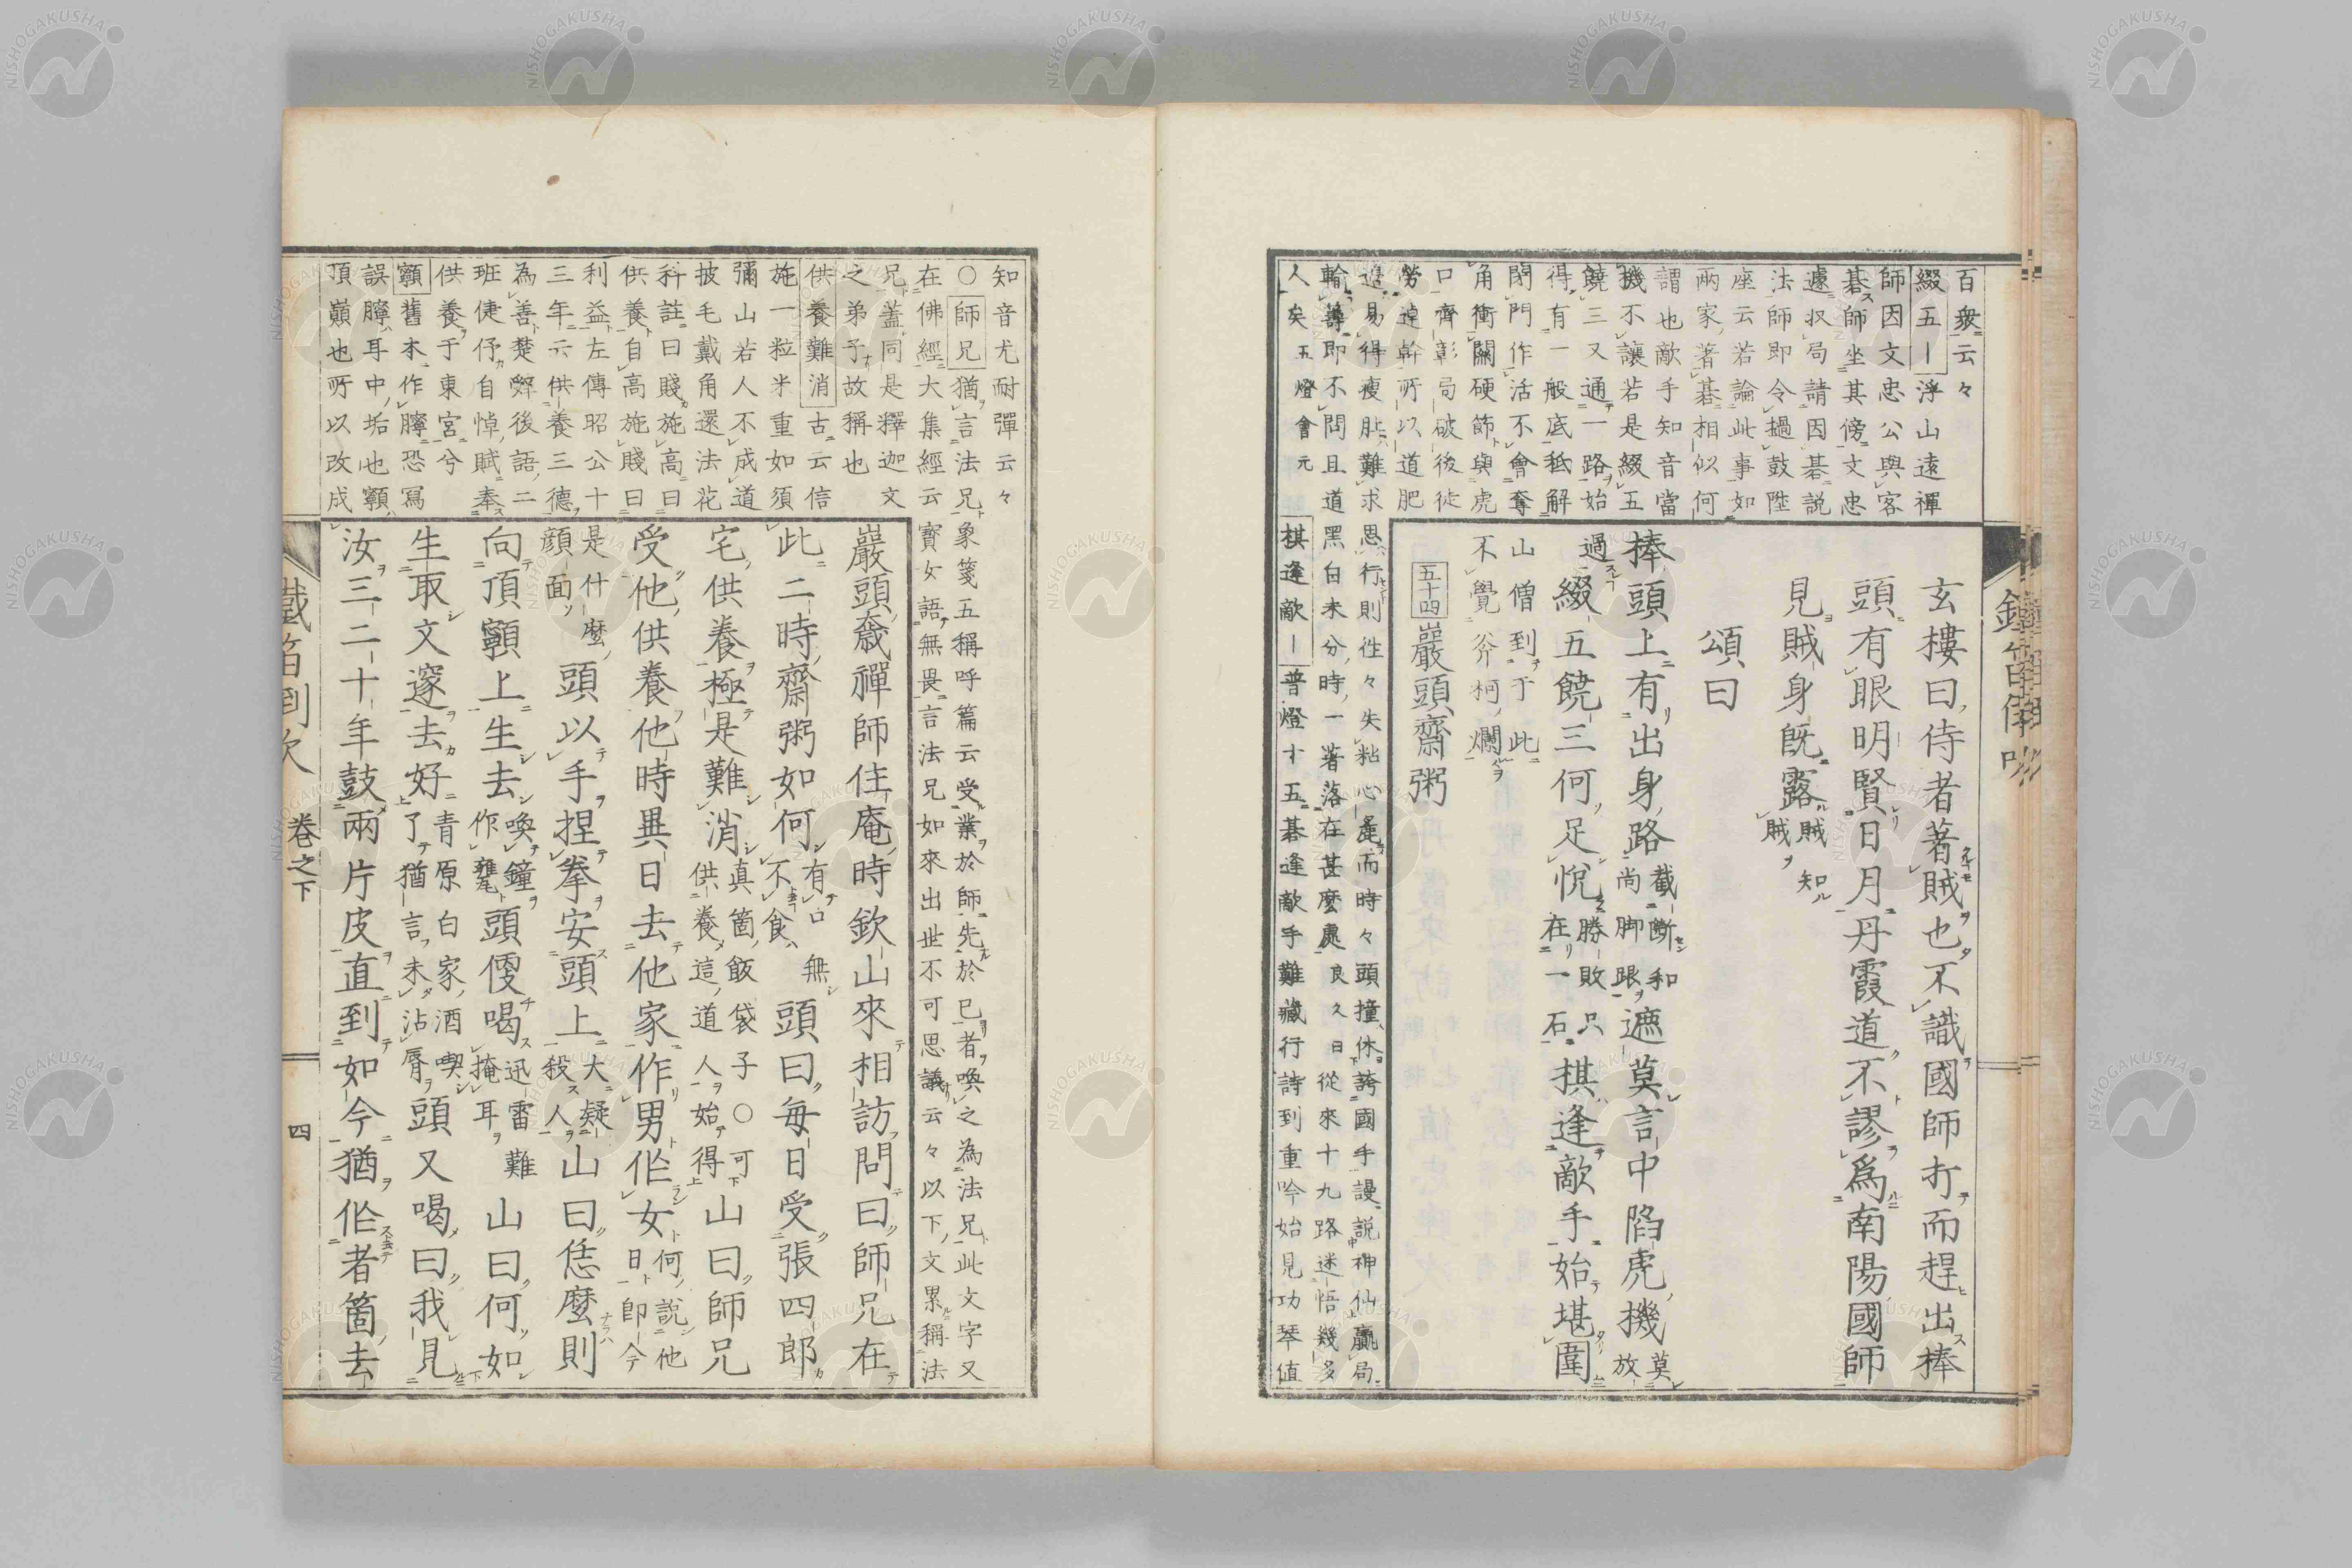 百衆云々
綴五｜浮山遠禪
師因文忠公與客
碁師坐其傍文忠
遽収局請因碁説
法師即令撾鼓陞
座云若論此事如
両家著碁相似何
謂也敵手知音當
機不讓若是綴五
饒三又通一路始
得有一般底秪解
閉門作活不會奪
角衝關硬節與虎
口齊彰局破後徒
勞逴幹所以道肥
邉易得瘦肚難求思行則徃々失粘心麁而時々頭撞休誇國手謾説神仙贏局
輸籌即不問且道黑白未分時一著落在甚麼處良久曰從來十九路迷悟幾多
人矣五燈會元 棋逢敵｜普燈十五碁逢敵手難藏行詩到重吟始見功琴値
玄樓曰侍者著賊也不識國師打而趕出棒
頭有眼明賢日月丹霞道不謬爲南陽國師
見賊身既露賊知賊
頌曰
棒頭上有出身路截斷和尚脚跟遮莫言中陷虎機莫放
過綴五饒三何足悅勝敗只在一石棋逢敵手始堪圍
山僧到于此
不覺斧柯爛
五十四 巖頭齋粥
知音尤耐彈云々
○師兄猶言法兄象箋五稱呼篇云受業於師先於已者喚之為法兄此文字又
在佛經大集經云寳女語無畏言法兄如來出世不可思議云々以下文累稱法
兄蓋同是釋迦文
之弟子故稱也
供養難消古云信
施一粒米重如須
彌山若人不成道
披毛戴角還法花
科註曰賤施高曰
供養自高施賤曰
利益左傳昭公十
三年云供養三德
為善楚辭後語二
班倢伃自悼賦奉
供養于東宮兮
顐舊本作矃恐寫
誤矃耳中垢也顐
頂巓也所以改成
巖頭奯禪師住庵時欽山來相訪問曰師兄在
此二時齋粥如何有口無不食頭曰毎日受張四郎
宅供養極是難消真箇飯袋子○可供養這道人始得山曰師兄
受他供養他時異日去他家作男作女何説他日即今
是什麼頭以手捏拳安頭上大疑殺人山曰恁麼則
顔面
向頂顐上生去喚鐘作甕頭便喝迅雷難掩耳山曰何如
生取文邃去好青原白家酒喫了猶言未沾脣頭又喝曰我見
汝三二十年鼓兩片皮直到如今猶作者箇去
鐵笛倒吹
卷之下
四